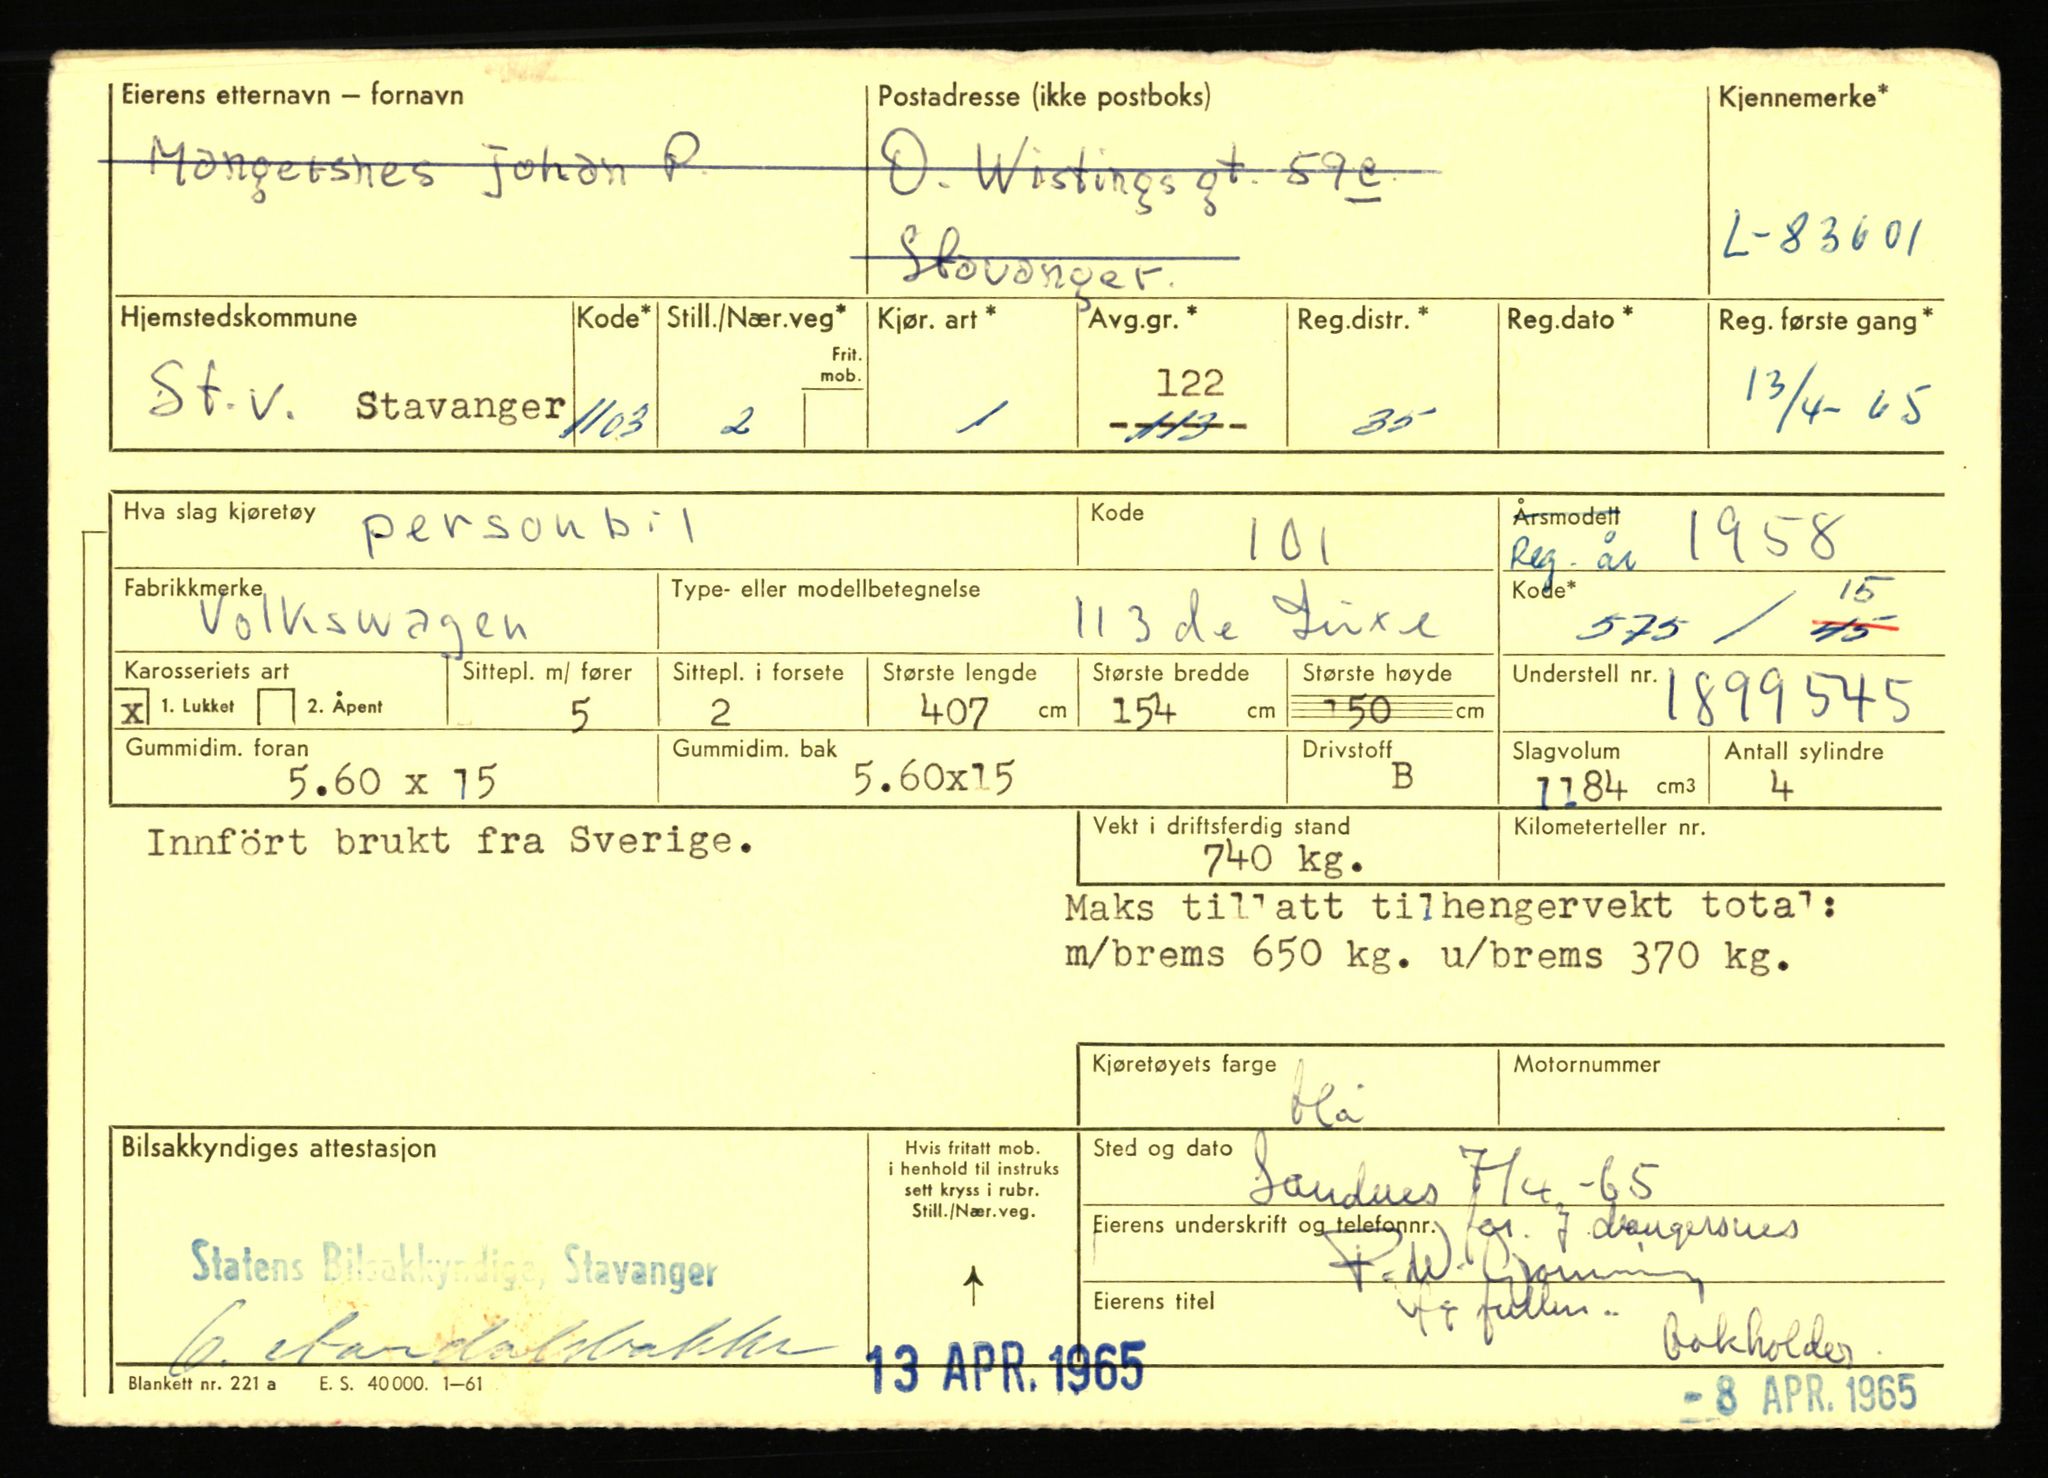 Eierens etternavn — fornavn
Postadresse (ikke postboks)
Kjennemerke*
Mangersnes Johan P.
O. Wistings gt. 59c.
Stavanger.
L-83601
Hjemstedskommune
Kode*
Still./Nær.veg*
Kjør. art *
Avg.gr. *
Reg.distr. *
Reg.dato *
Reg. første gang *
Frit.
mob.
St.v. Stavanger
1103
2
1
122
113
35
13/4- 65
Hva slag kjøretøy
personbil
Kode
101
Årsmodell
Reg. år
1958
Fabrikkmerke
Volkswagen
Type- eller modellbetegnelse
113 de Luxe
Kode*
575 / 45
15
Karosseriets art
X 1. Lukket 2. Åpent
Sittepl. m/ fører
5
Sittepl. i forsete
2
Største lengde
407 cm
Største bredde
154 cm
Største høyde
150 cm
Understell nr.
1899545
Gummidim. foran
5.60 x 15
Gummidim. bak
5.60x15
Drivstoff
B
Slagvolum
1184 cm3
Antall sylindre
4
Innfört brukt fra Sverige.
Vekt i driftsferdig stand
740 kg.
Kilometerteller nr.
Maks tillatt tilhengervekt total:
m/brems 650 kg. u/brems 370 kg.
Kjøretøyets farge
blå
Motornummer
Bilsakkyndiges attestasjon
Hvis fritatt mob.
i henhold til instruks
sett kryss i rubr.
Still./Nær.veg.
Sted og dato
Sandnes 7/4 -65
Eierens underskrift og telefonnr.
for J Mangersnes
Eierens titel
bokholder.
Statens Bilsakkyndige, Stavanger
13 APR. 1965
Blankett nr. 221 a E. S. 40000. 1—61
- 8 APR. 1965